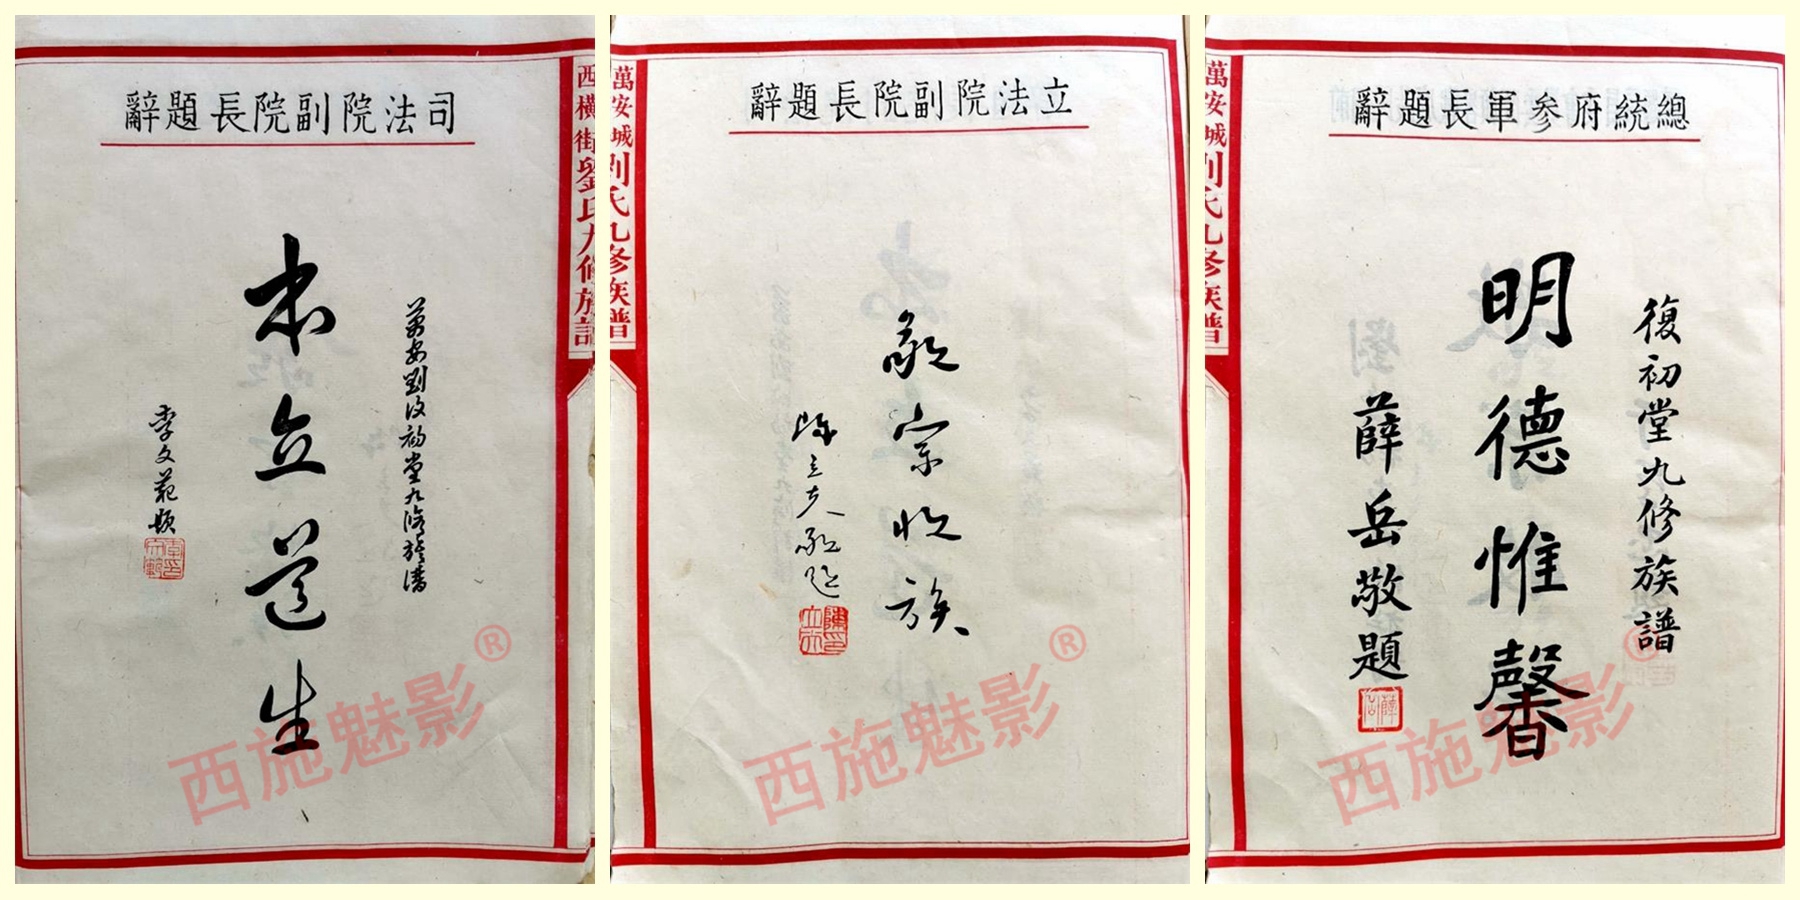 司法院副院長題辭
萬安劉復初堂九修族譜
本立道生
李文範題
李文範印
西橫街劉氏九修族譜
西施魅影®
立法院副院長題辭
敬宗收族
陳立夫敬題
萬安城劉氏九修族譜
西施魅影®
總統府參軍長題辭
復初堂九修族譜
明德惟馨
薛岳敬題
萬安城劉氏九修族譜
西施魅影®